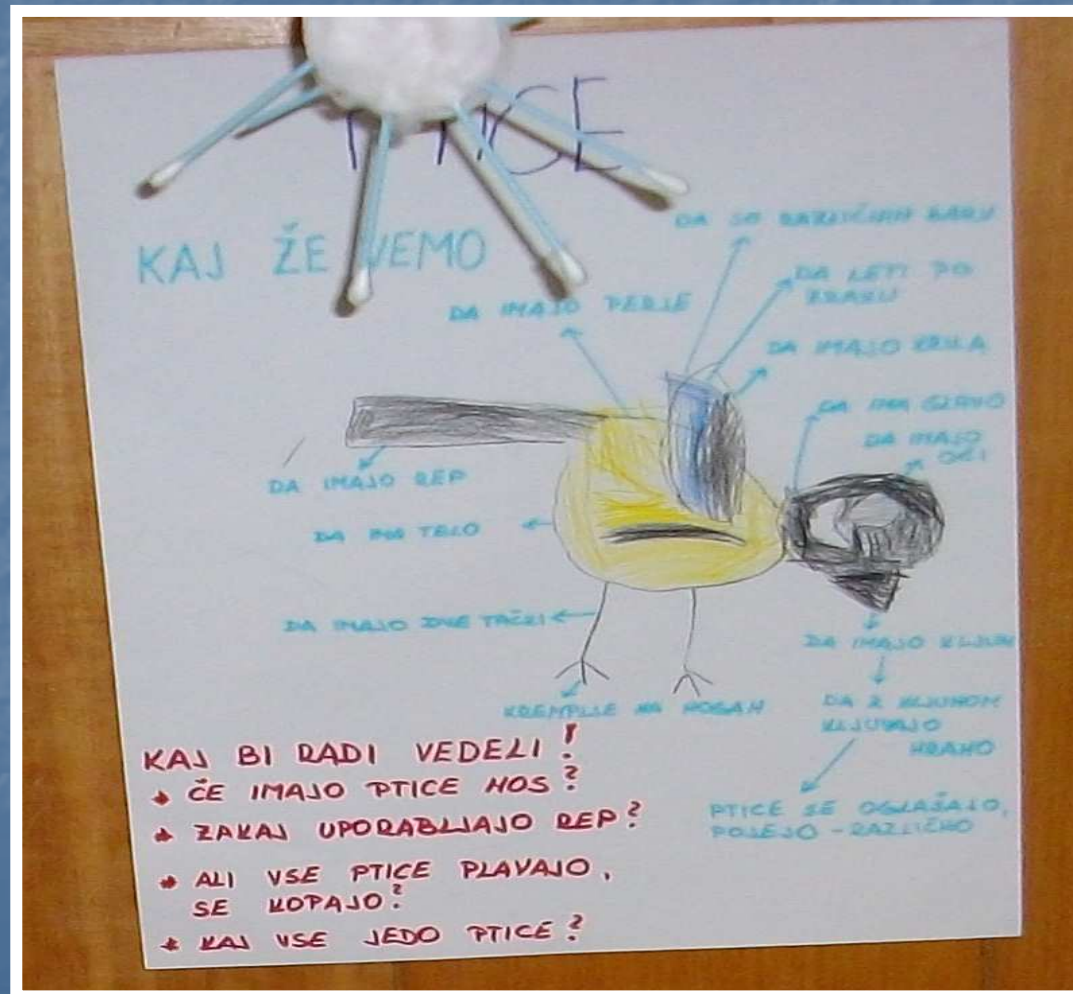 PTICE
KAJ ŽE VEMO
DA SO RAZLIČNIH BARV
DA LETI PO
ZRAKU
DA IMAJO PERJE
DA IMAJO KRILA
DA IMA GLAVO
DA IMAJO
OČI
DA IMAJO REP
DA IMA TELO
DA IMAJO DVE TAČKI
DA IMAJO KLJUN
KREMPLJE NA NOGAH
DA Z KLJUNOM
KLJUVAJO
HRANO
PTICE SE OGLAŠAJO,
POJEJO - RAZLIČNO
KAJ BI RADI VEDELI!
* ČE IMAJO PTICE NOS?
* ZAKAJ UPORABLJAJO REP?
* ALI VSE PTICE PLAVAJO,
SE KOPAJO?
* KAJ VSE JEDO PTICE?